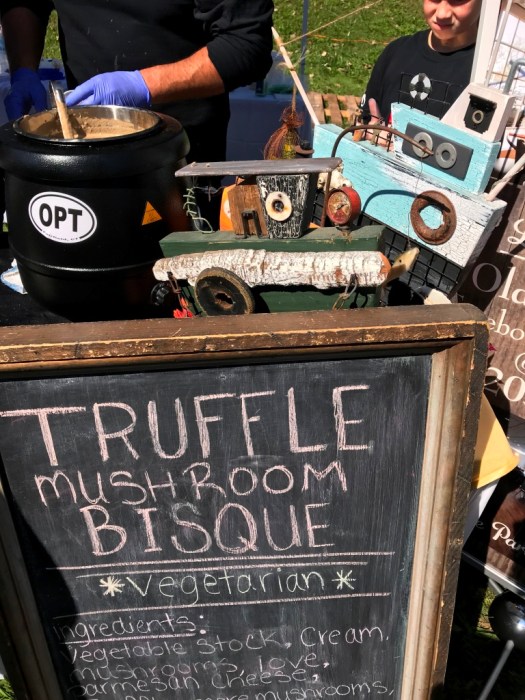 OPT
TRUFFLE
MUSHROOM
BISQUE
*Vegetarian*
Ingredients:
Vegetable Stock, Cream,
mushrooms, love,
parmesan cheese,
more mushrooms,
Old